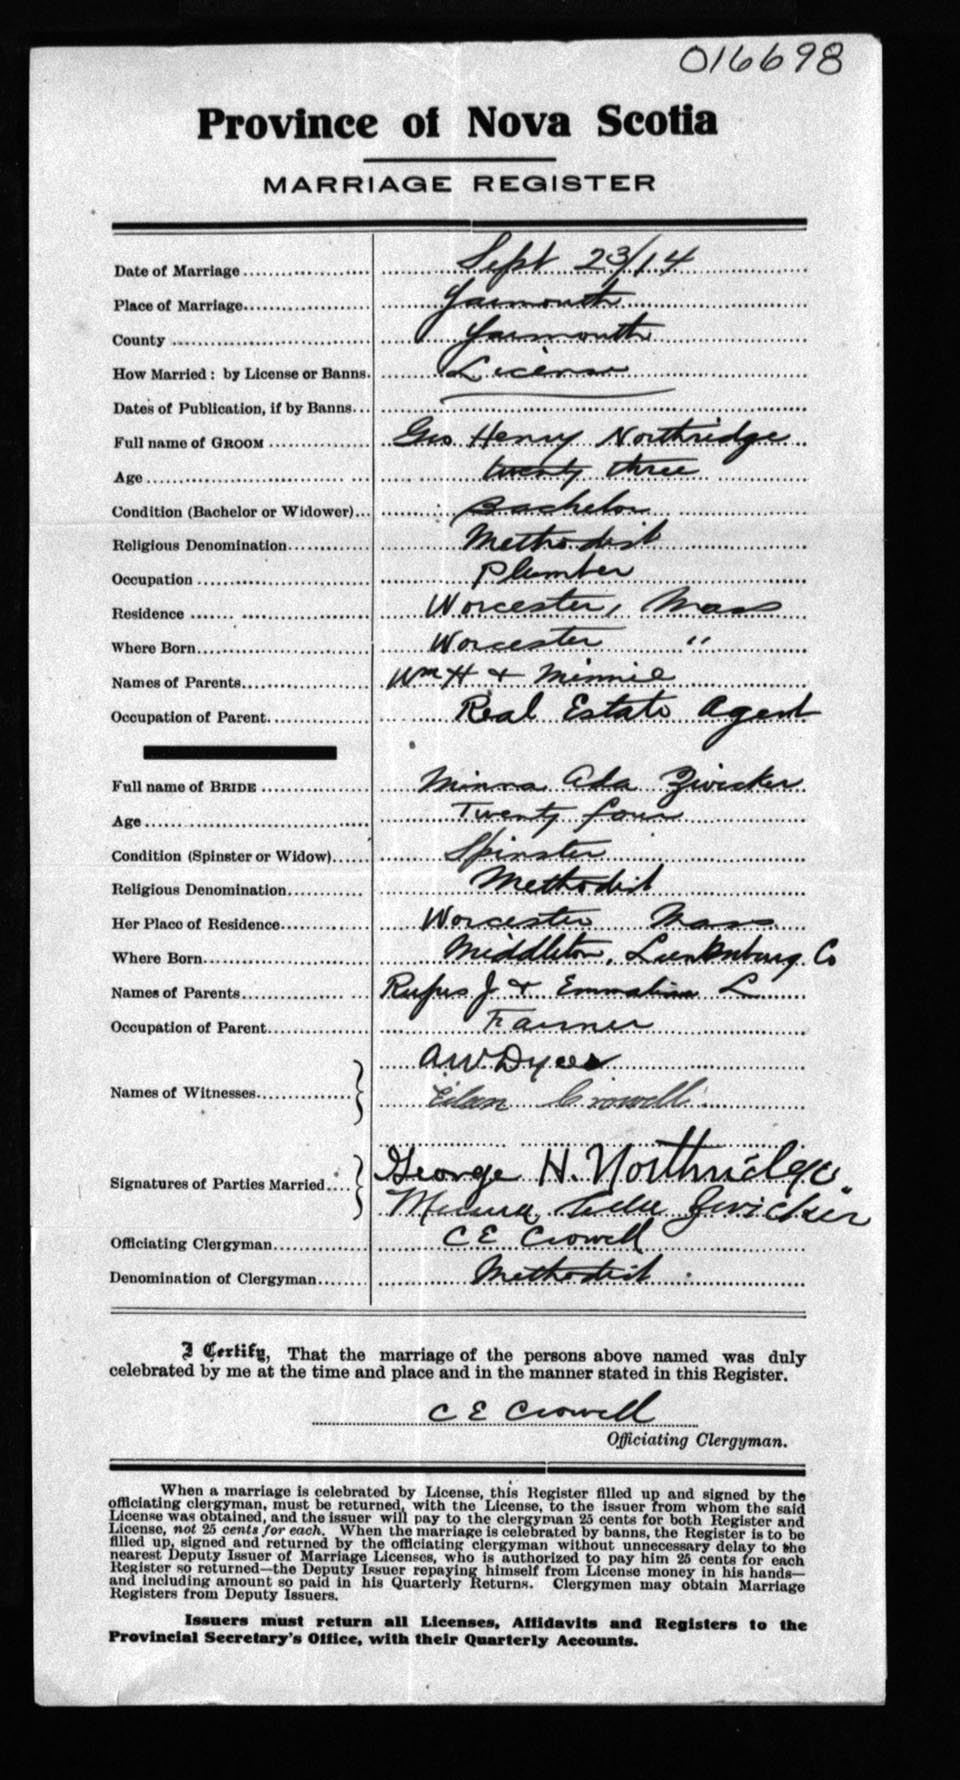 016698
Province of Nova Scotia
MARRIAGE REGISTER
Date of Marriage Sept 23/14
Place of Marriage Yarmouth
County Yarmouth
How Married: by License or Banns. License
Dates of Publication, if by Banns
Full name of GROOM Geo Henry Northridge
Age twenty three
Condition (Bachelor or Widower) Bachelor
Religious Denomination Methodist
Occupation Plumber
Residence Worcester, Mass
Where Born Worcester "
Names of Parents Wm H + Minnie
Occupation of Parent Real Estate Agent
Full name of BRIDE Minna Ada Zwicker
Age Twenty four
Condition (Spinster or Widow) Spinster
Religious Denomination Methodist
Her Place of Residence Worcester Mass
Where Born Middleton, Lunenburg Co
Names of Parents Rufus J + Emmaline L
Occupation of Parent Farmer
A W
Names of Witnesses
Crowell
George H. Northridge
Signatures of Parties Married
Zwicker
Officiating Clergyman C E Crowell
Denomination of Clergyman Methodist
I Certify, That the marriage of the persons above named was duly
celebrated by me at the time and place and in the manner stated in this Register.
C E Crowell
Officiating Clergyman.
When a marriage is celebrated by License, this Register filled up and signed by the
officiating clergyman, must be returned, with the License, to the issuer from whom the said
License was obtained, and the issuer will pay to the clergyman 25 cents for both Register and
License, not 25 cents for each. When the marriage is celebrated by banns, the Register is to be
filled up, signed and returned by the officiating clergyman without unnecessary delay to the
nearest Deputy Issuer of Marriage Licenses, who is authorized to pay him 25 cents for each
Register so returned—the Deputy Issuer repaying himself from License money in his hands—
and including amount so paid in his Quarterly Returns. Clergymen may obtain Marriage
Registers from Deputy Issuers.
Issuers must return all Licenses, Affidavits and Registers to the
Provincial Secretary's Office, with their Quarterly Accounts.